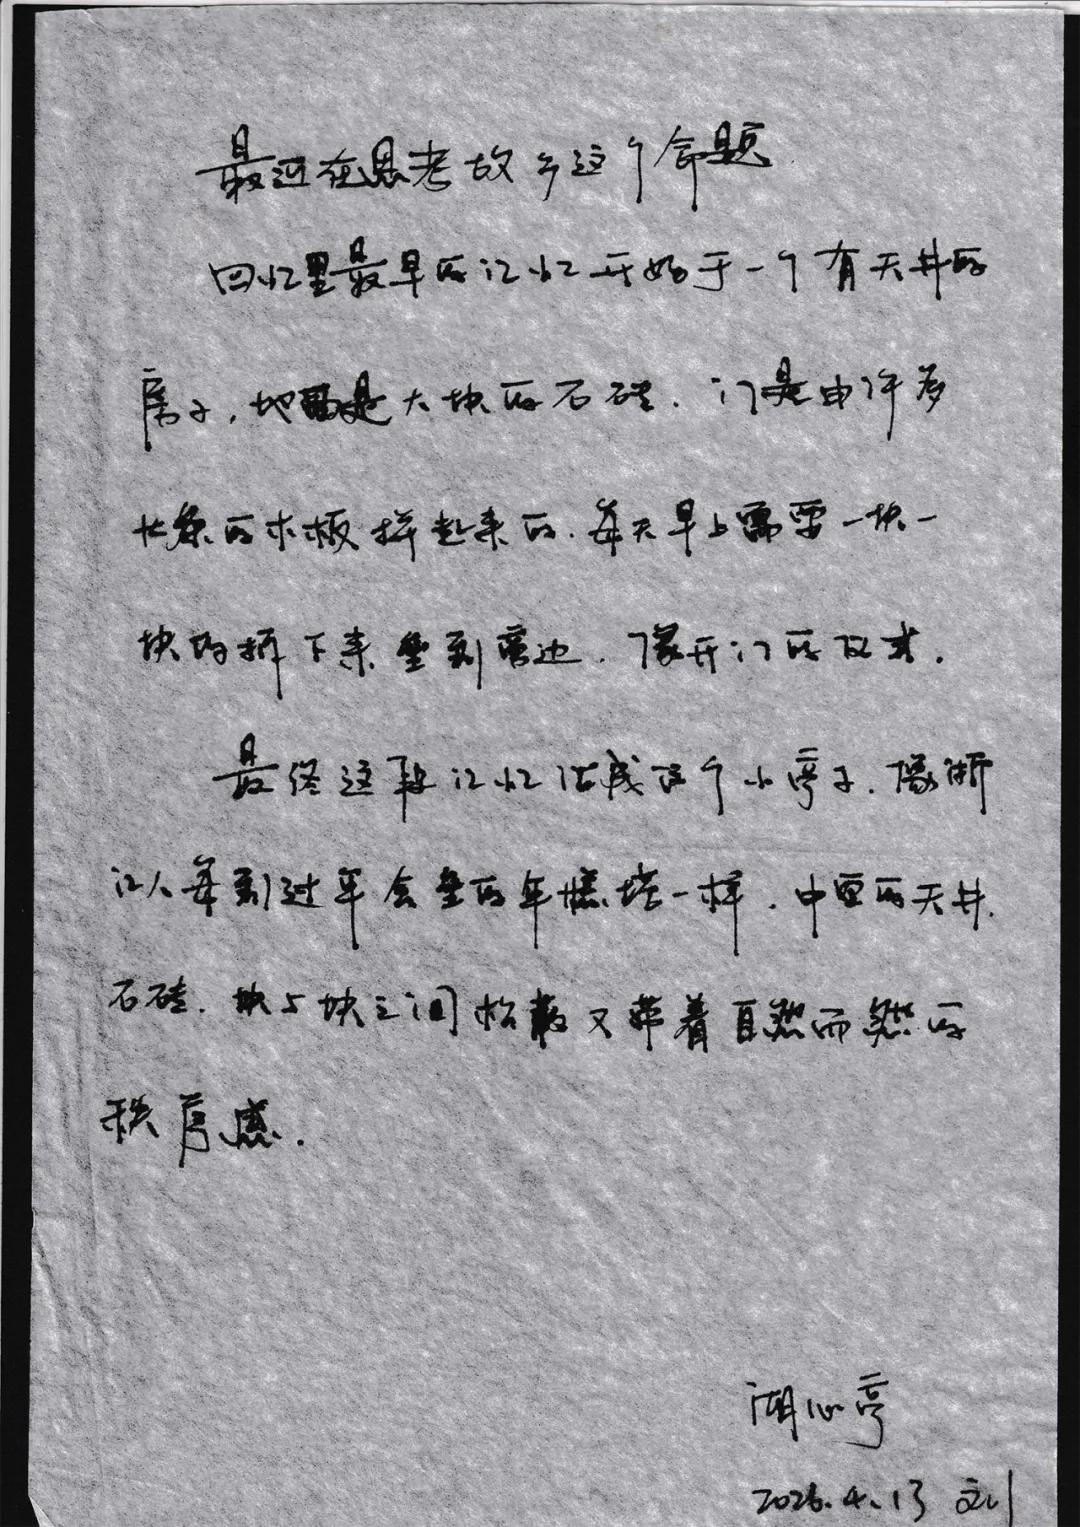 最近在思考故乡这个命题.
回忆里最早的记忆开始于一个有天井的
房子,地面是大块的石砖.门是由许多
长条的木板拼起来的.每天早上需要一块一
块的拆下来垒到旁边.像开门的仪式.
最终这段记忆化成这个小亭子.像浙
江人每到过年会垒的年糕塔一样.中空的天井.
石砖.块与块之间松散又带着自然而然的
秩序感.
湖心亭
2026.4.13 刘